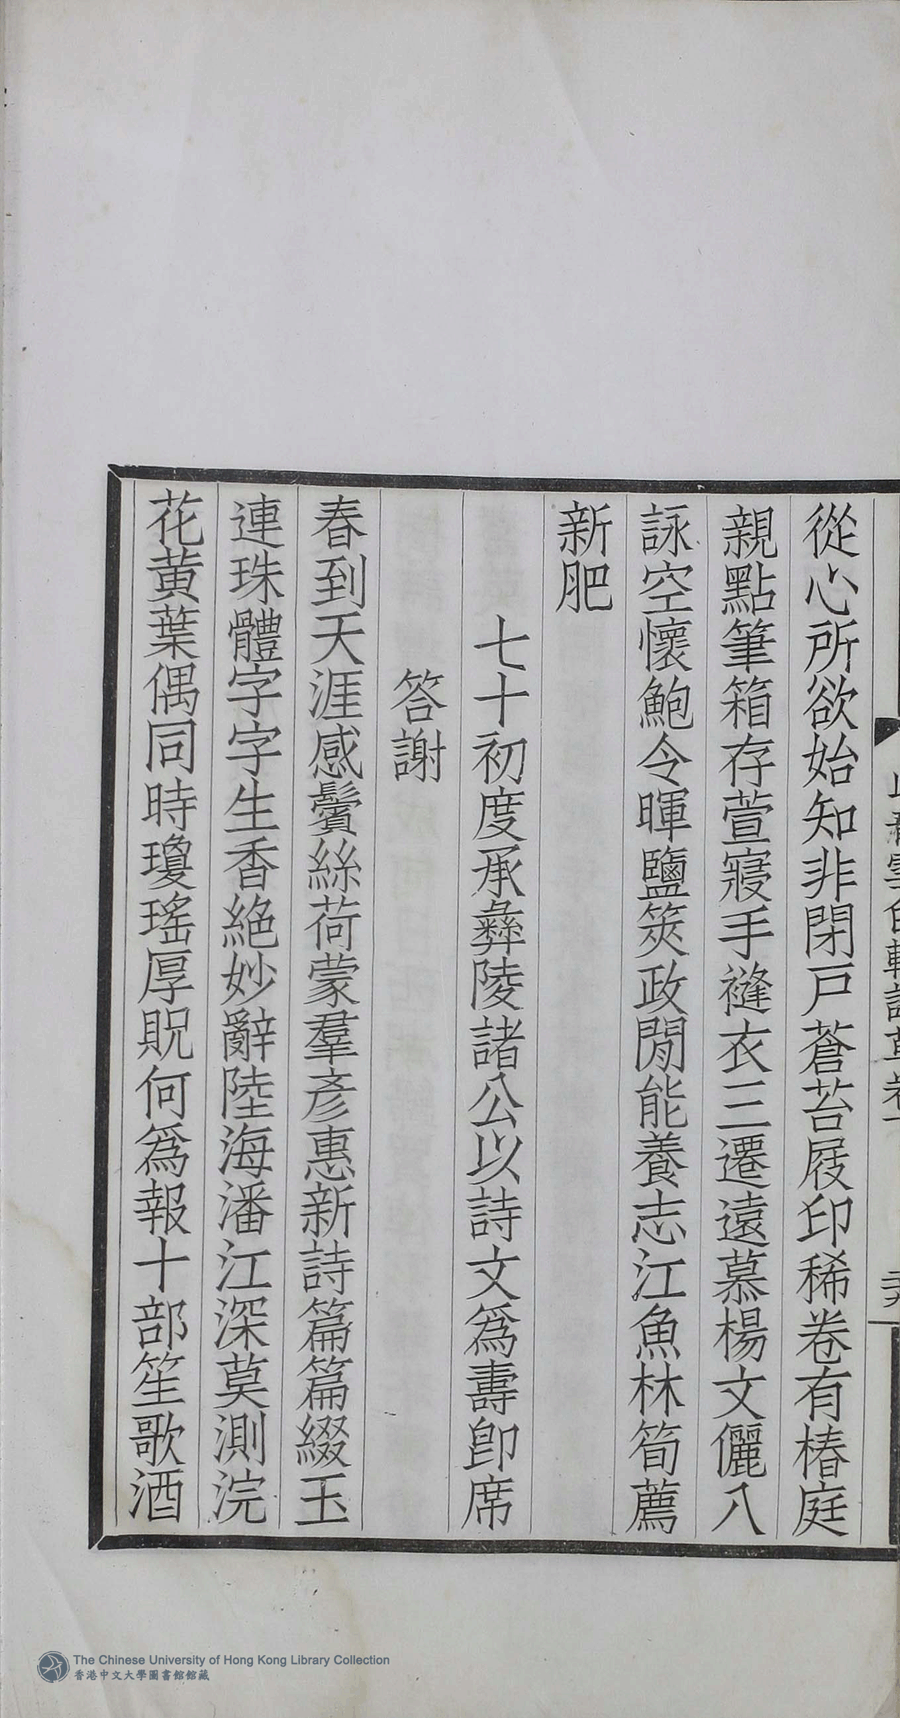 從心所欲始知非閉戶蒼苔屐印稀卷有椿庭
親點筆箱存萱寢手縫衣三遷遠慕楊文儷八
詠空懷鮑令暉鹽筴政閒能養志江魚林筍薦
新肥
七十初度承彝陵諸公以詩文為壽卽席
答謝
春到天涯感鬢絲荷蒙羣彥惠新詩篇篇綴玉
連珠體字字生香絕妙辭陸海潘江深莫測浣
花黃葉偶同時瓊瑤厚貺何為報十部笙歌酒
The Chinese University of Hong Kong Library Collection
香港中文大學圖書館館藏